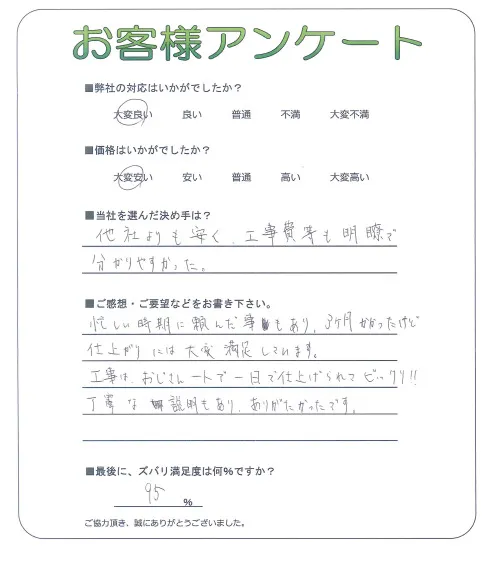 お客様アンケート
■弊社の対応はいかがでしたか?
大変良い 良い 普通 不満 大変不満
■価格はいかがでしたか?
大変安い 安い 普通 高い 大変高い
■当社を選んだ決め手は?
他社よりも安く、工事費等も明瞭で
分かりやすかった。
■ご感想・ご要望などをお書き下さい。
忙しい時期に頼んだ事もあり、3ヶ月かかったけど
仕上がりには大変満足しています。
工事は、おじさん一人で一日で仕上げられてビックリ!!
丁寧な説明もあり、ありがたかったです。
■最後に、ズバリ満足度は何%ですか?
95 %
ご協力頂き、誠にありがとうございました。